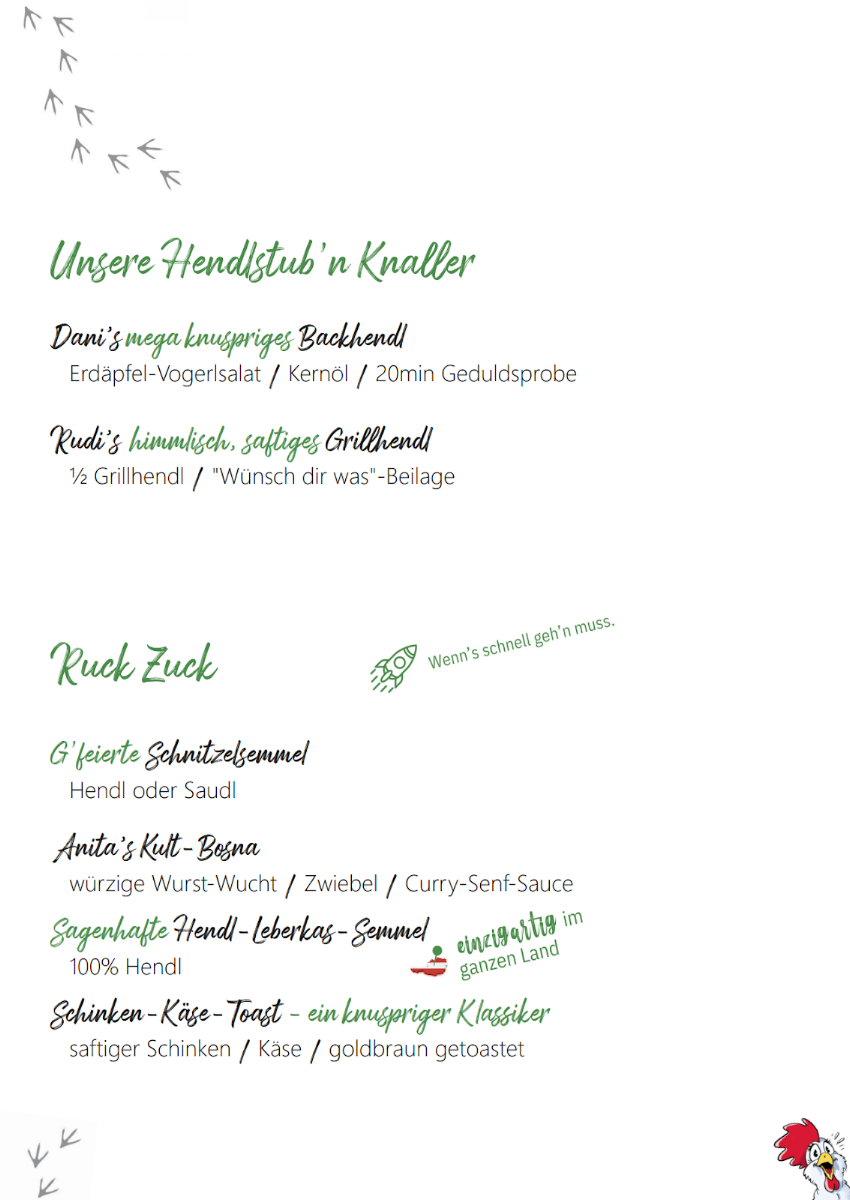 Unsere Hendlstub'n Knaller
Dani's mega knuspriges Backhendl
Erdäpfel-Vogerlsalat / Kernöl / 20min Geduldsprobe
Rudi's himmlisch, saftiges Grillhendl
½ Grillhendl / "Wünsch dir was"-Beilage
Ruck Zuck
Wenn's schnell geh'n muss.
G'feierte Schnitzelsemmel
Hendl oder Saudl
Anita's Kult-Bosna
würzige Wurst-Wucht / Zwiebel / Curry-Senf-Sauce
Sagenhafte Hendl-Leberkas-Semmel
einzigartig im
ganzen Land
100% Hendl
Schinken-Käse-Toast - ein knuspriger Klassiker
saftiger Schinken / Käse / goldbraun getoastet